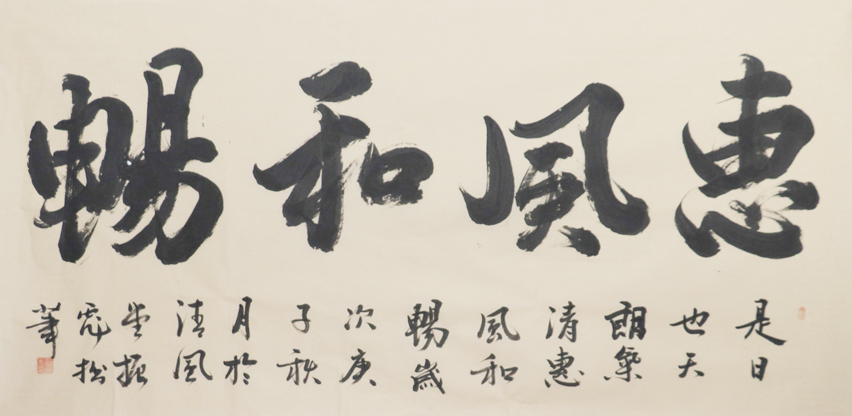 惠風和暢
是日
也天
朗氣
清惠
風和
暢歲
次庚
子秋
月於
清風
堂振
彪拙
筆